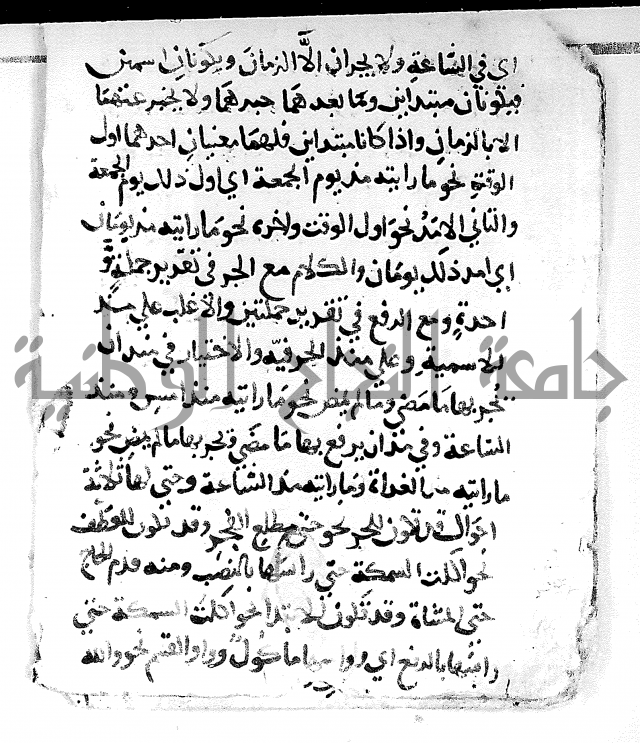 اي في الساعة ولا يجران الا الزمان ويكونان اسمين
فيكونان مبتداين وما بعدهما خبرهما ولا يخبر عنهما
الا بالزمان واذا كانا مبتداين فلهما معنيان احدهما اول
الوقت نحو ما رايته مذ يوم الجمعة اي اول ذلك يوم الجمعة
والثاني الامد نحو اول الوقت واخره نحو ما رايته مذ يومان
اي امد ذلك يومان والكلام مع الجر في تقدير جملة وا
حدة ومع الرفع في تقدير جملتين والاغلب علي مذ
الاسمية وعلي منذ الحرفية والاختيار في منذ ان
تجر بها ما مضي وما لم يمض نحو ما رايته منذ امس ومنذ
الساعة وفي مذ ان يرفع بها ما مضي ويجر بها ما لم يمض نحو
ما رايته مذ الغداة وما رايته مذ الساعة وحتي لها ثلاثة
احوال قد تكون للجر نحو حتي مطلع الفجر وقد تكون للعطف
نحو اكلت السمكة حتي راسها بالنصب ومنه قدم الحاج
حتي المشاة وقد تكون للابتدا نحو اكلت السمكة حتي
راسها بالرفع اي وراسها ماكول وواو القسم نحو والله
جامعة النجاح الوطنية